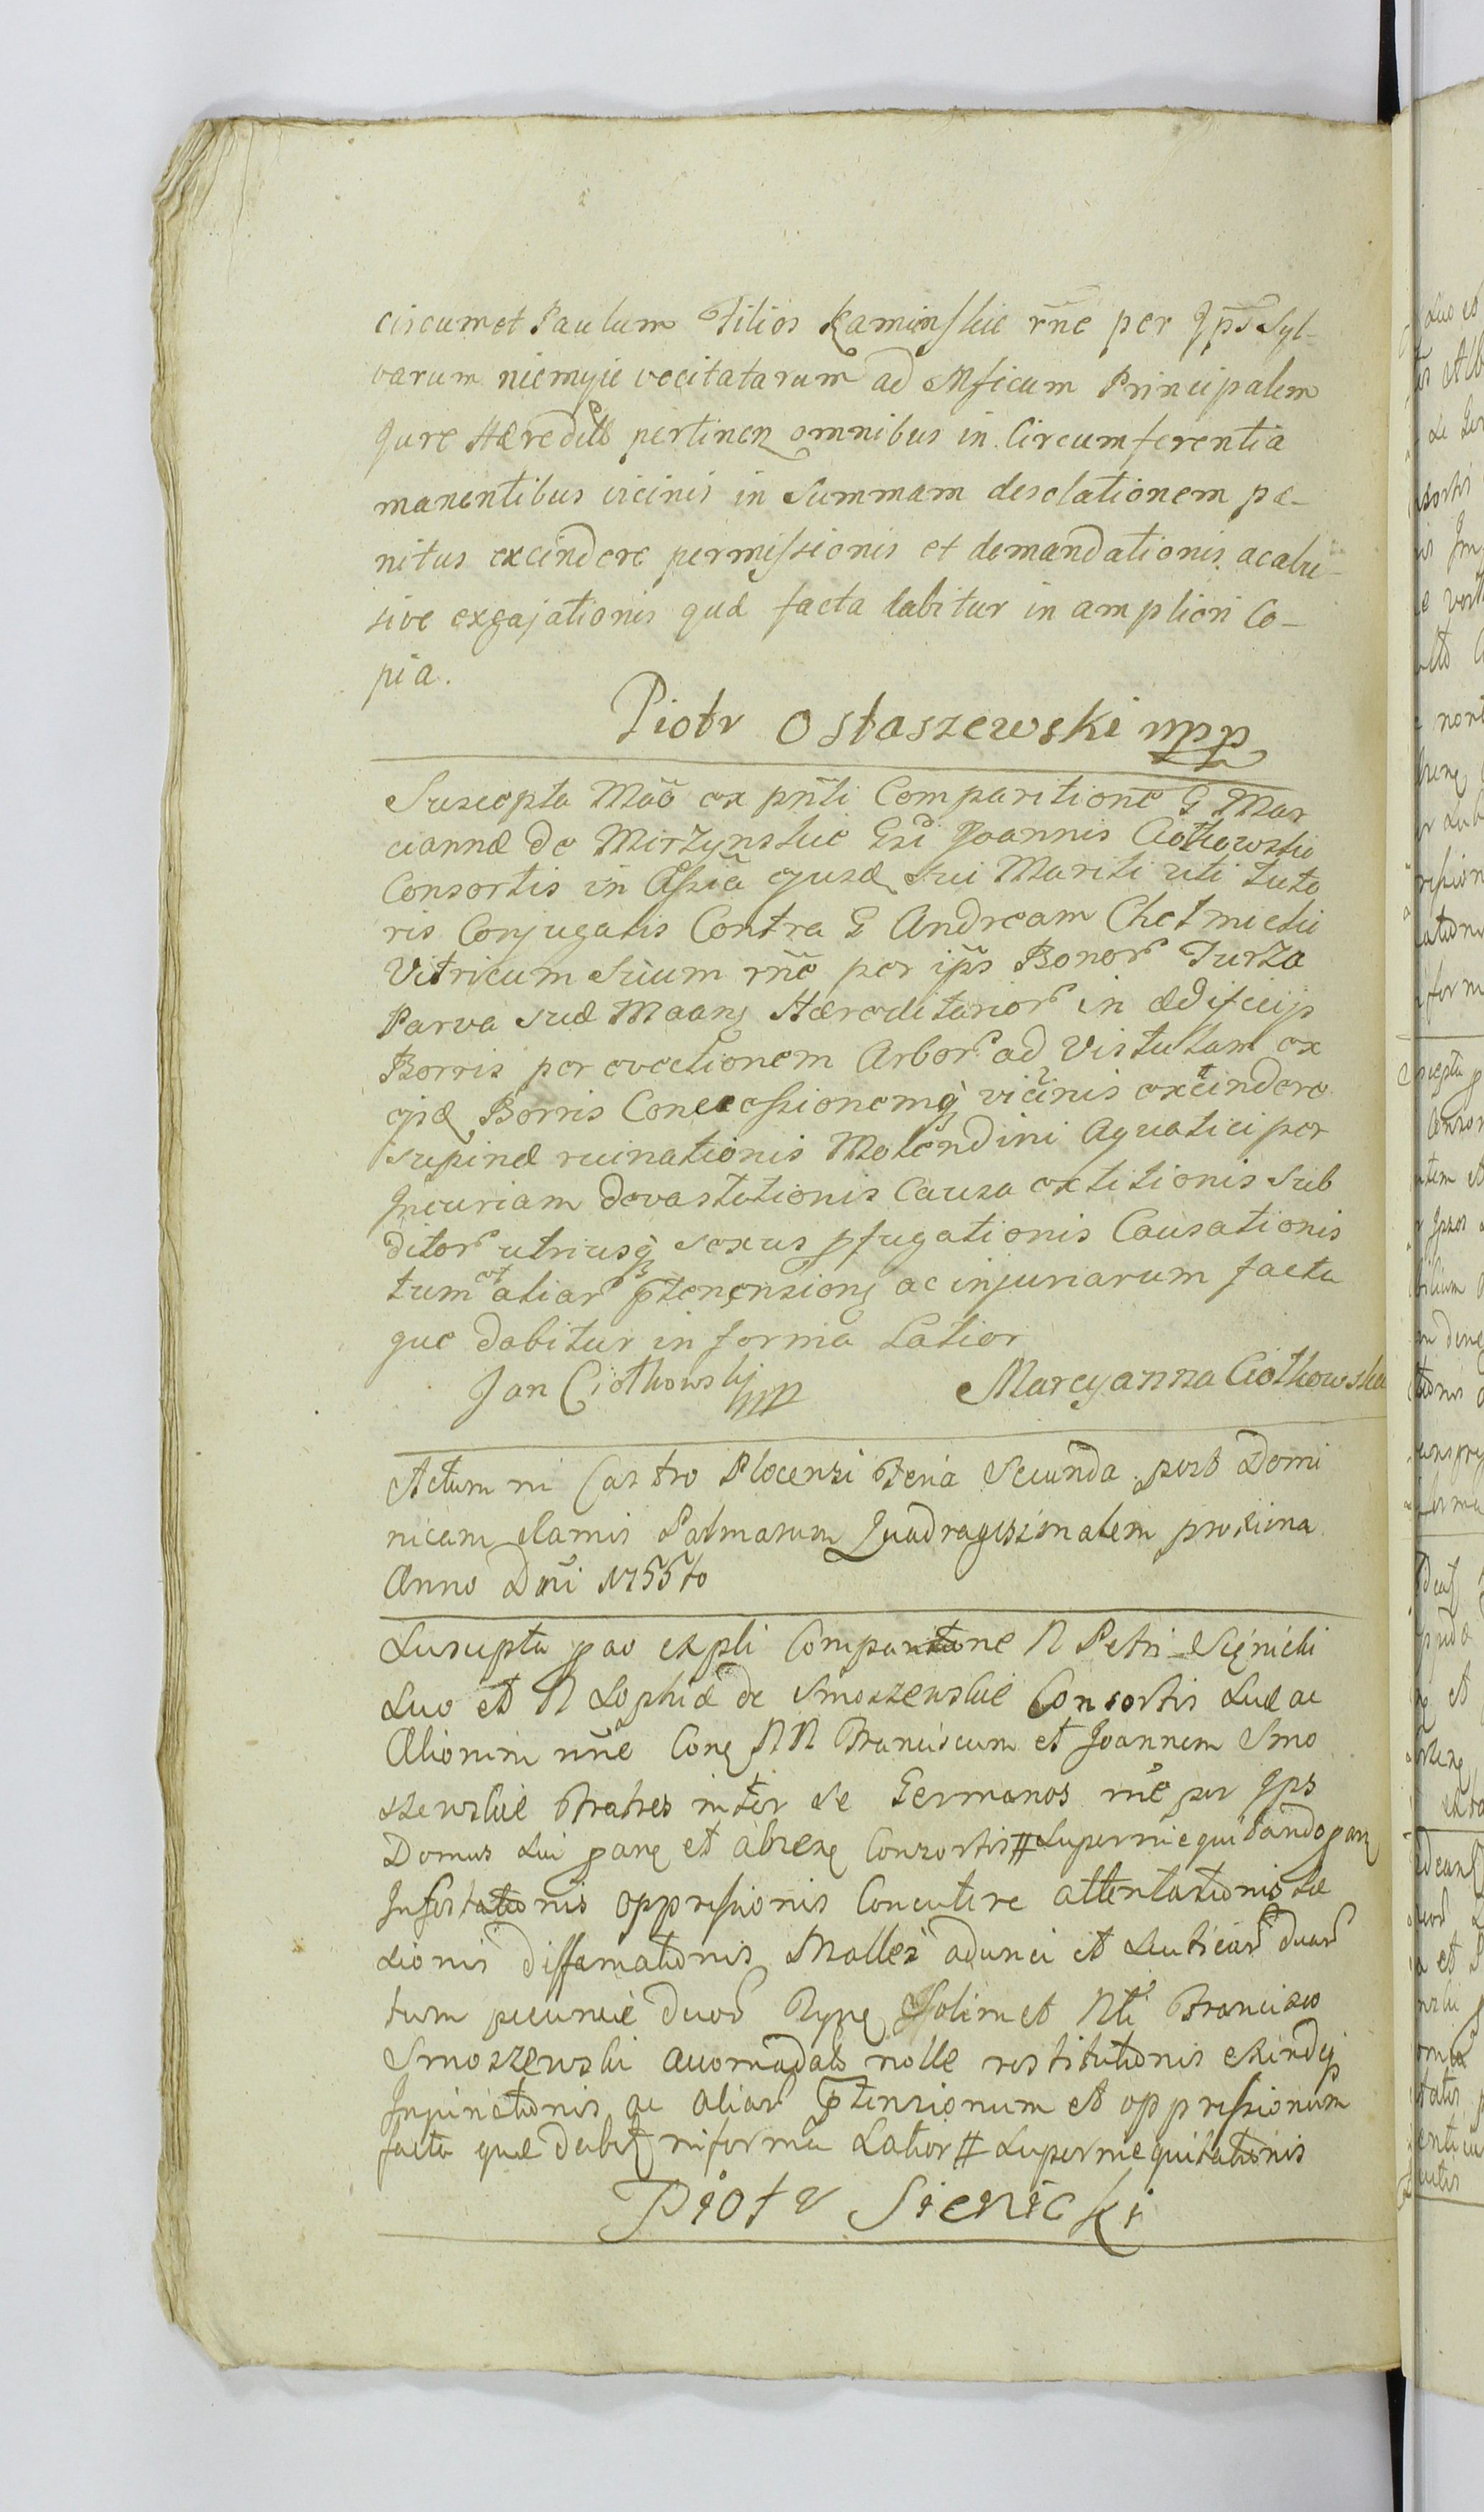 ciscum et Paulum Filios Kaminskie rñe per Jps Syl-
varum niemyie vocitatarum ad Mficum Principalem
Jure Hæredit pertinen omnibus in Circumferentia
manentibus vicinis in Summam desolationem pæ-
nitus excindere permissionis et demandationis ac abu-
sive exgajationis quæ facta dabitur in ampliori Co-
pia.
Piotr Ostaszewski mpp
Suscepta Mão ex pñti Comparitione G Mar
ciannæ de Mirzynskie Gsi Joannis Ciołkowski
Consortis in Assia ejusd Sui Mariti uti tuto
ris Conjugalis Contra G Andream Chełmicki
Vitricum Suum rñe per ips Bonor Turza
Parva suæ Maanz Hæreditarior in ædificijs
Borris per evectionem Arbor ad Vistulam ex
ejsd Borris Concessionemq vicinis excindere
supinæ ruinationis Molendini Aquatici per
Incuriam devastationis Causa extitionis Sub
ditor utriusq sexus pfugationis Causationis
tum et aliar ptensionz ac injuriarum facta
que dabitur in forma Latior
Jan Ciołkowski mpp Marcyanna Ciołkowska
Actum in Castro Plocensi Feria Secunda post Domi
nicam Ramis Palmarum Quadragesimalem proxima
Anno Dñi 1755to
Suscepta pao ex pñti Comparitione N Petri Sieniecki
Suo et N Sophiæ de Smoszewskie Consortis Suæ ac
Aliorum nñe Conq NN Franciscum et Joannem Smo
szewskie Fratres inter se Germanos rñe per Jps
Domus Sui panq et absenq Consortis # Superinequitando panz
Infestationis oppressionis Concutere attentationis Læ
sionis diffamationis Mallei adunci et Scuticar duar
tum pecuniæ duor Tynf Isolimet Nli Francisco
Smoszewski accomodato nolle restitutionis exindeq
Injunctionis ac aliar ptensionum et oppressionum
facta quæ dabit in forma Latior # Superinequitationis
Piotr Sienicki